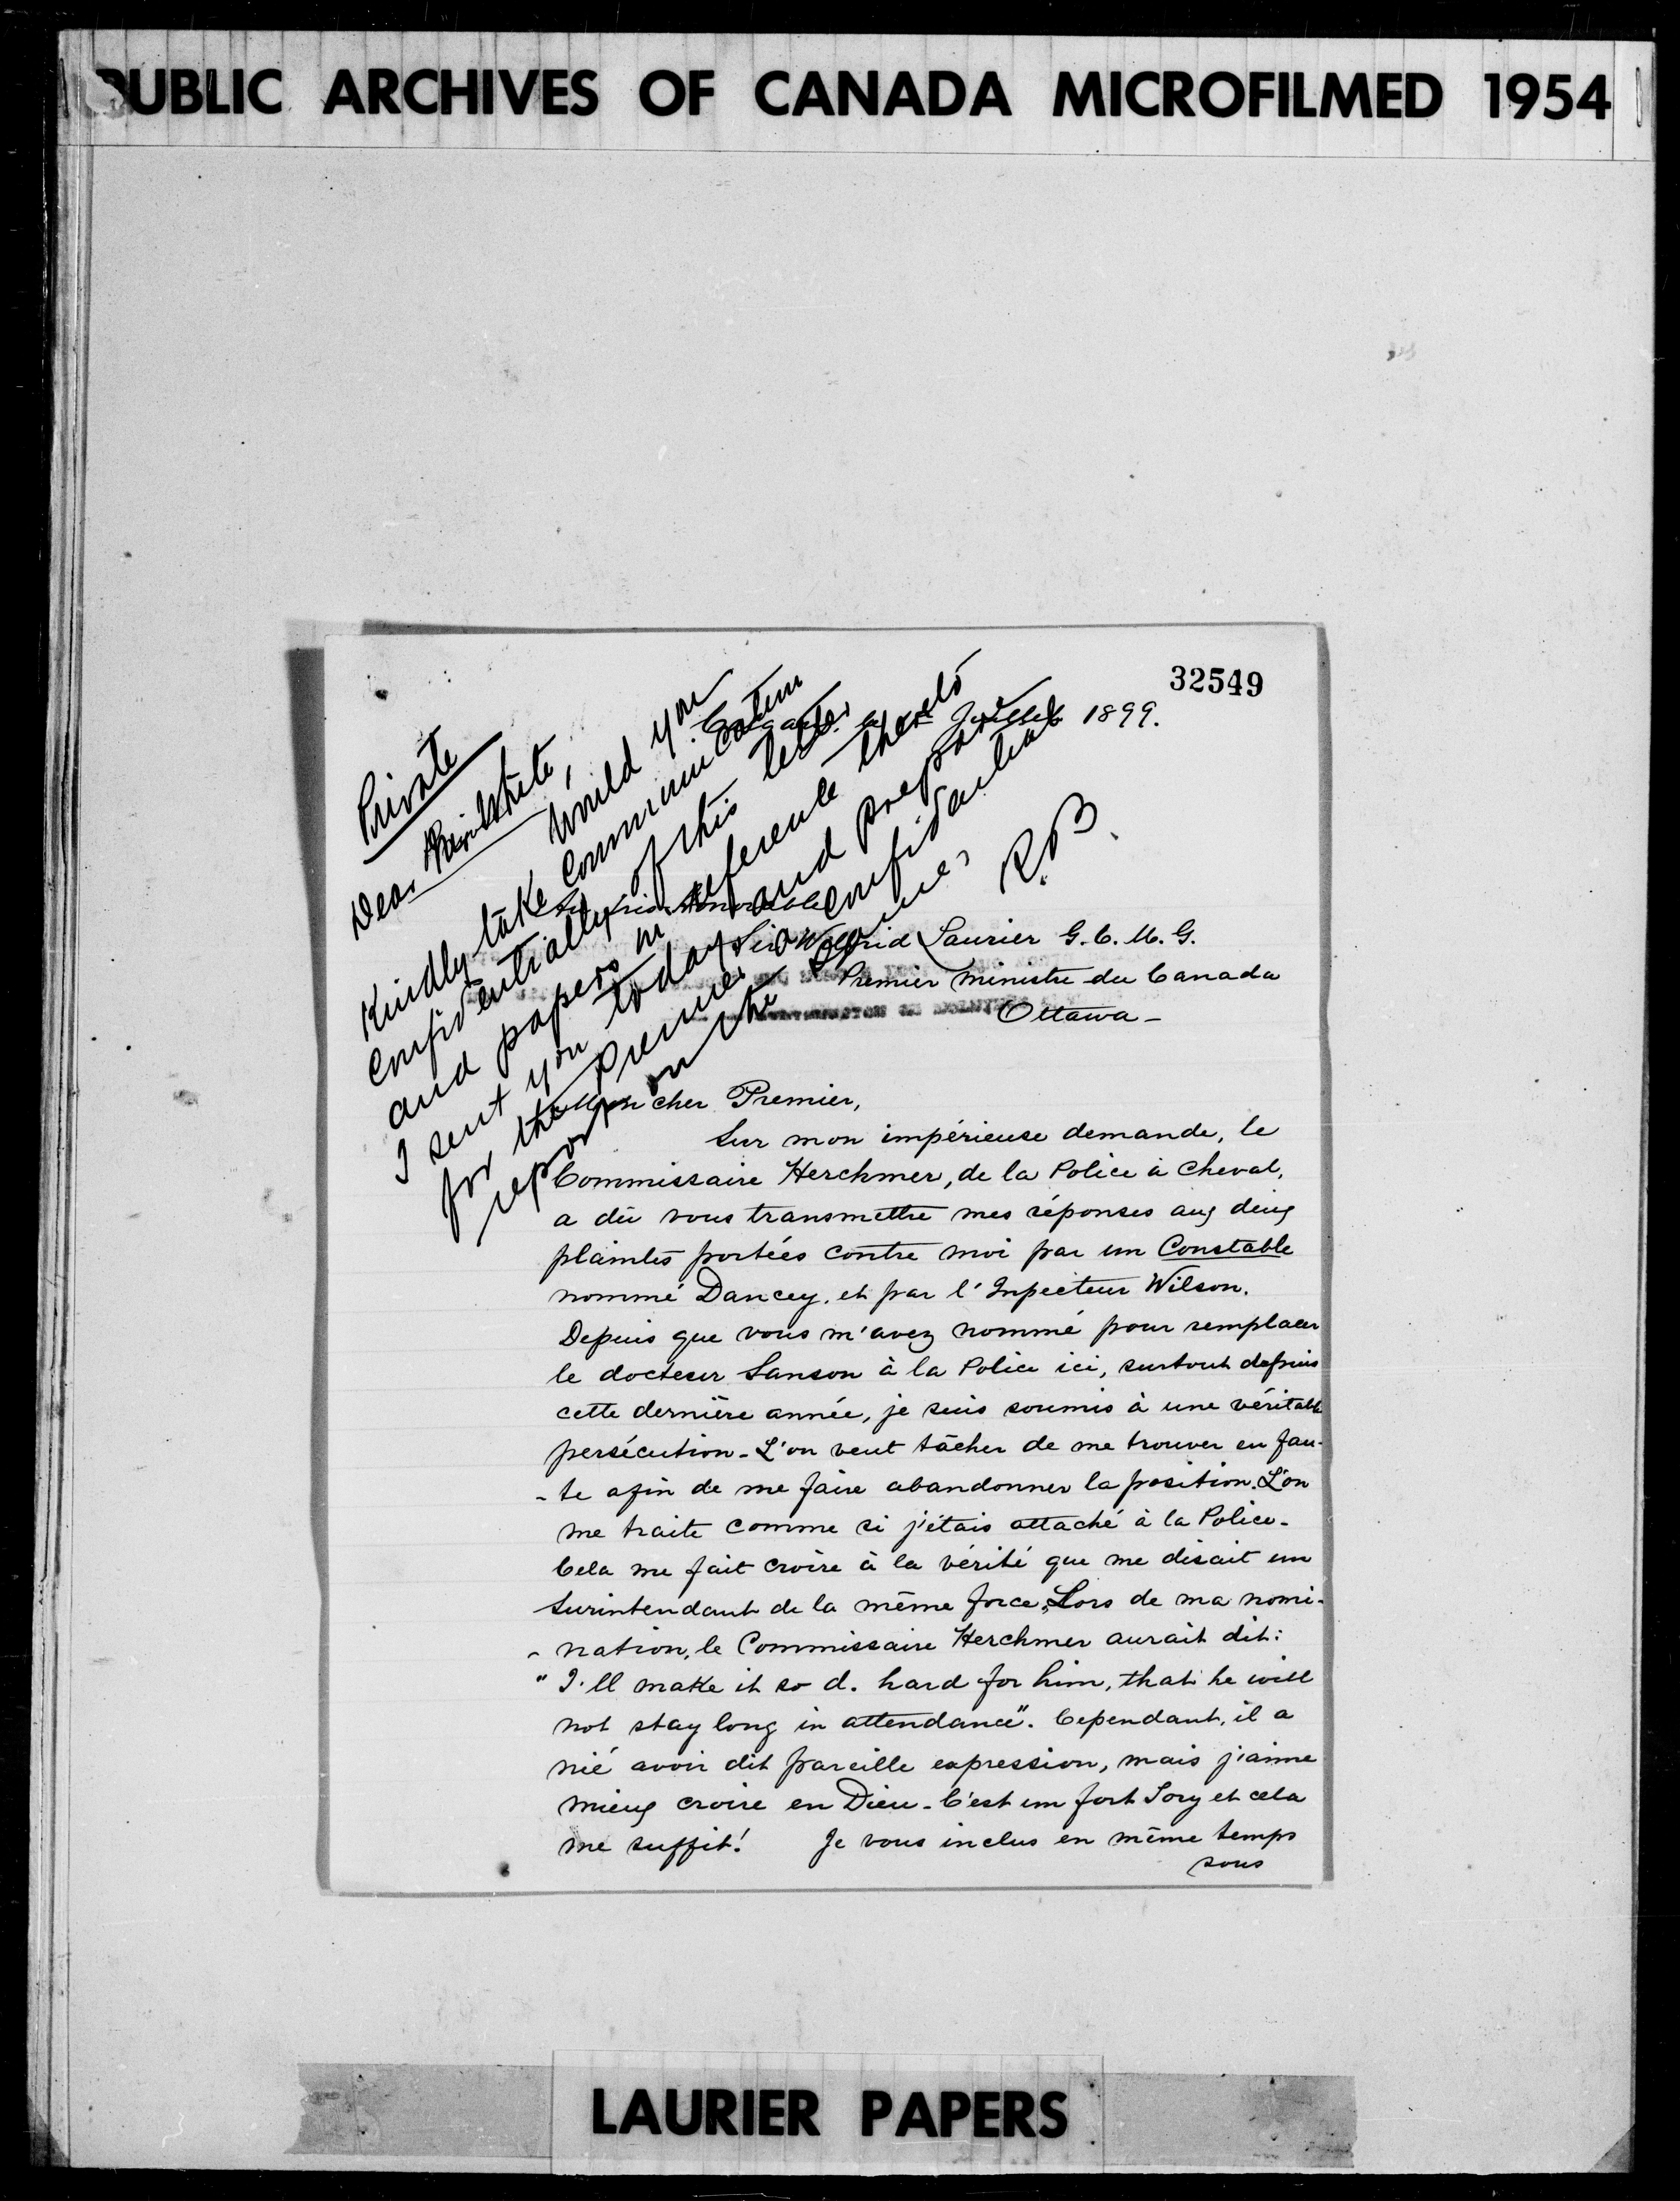 PUBLIC ARCHIVES OF CANADA MICROFILMED 1954
32549
Private
Dear
Would you
Kindly take communication
confidentially of this letter
and papers in reference thereto
I sent you today and prepare
for the Premier a confidential
report on the same,
R. B.
Calgary Juillet 1899.
Honorable
Sir Wilfrid Laurier G. C. M. G.
Premier Ministre du Canada
Ottawa -
Mon cher Premier,
Sur mon impérieuse demande, le
Commissaire Herchmer, de la Police à Cheval,
a dû vous transmettre mes réponses aux deux
plaintes portées contre moi par un Constable
nommé Dancey, et par l'Inpecteur Wilson.
Depuis que vous m'avez nommé pour remplacer
le docteur Sanson à la Police ici, surtout depuis
cette dernière année, je suis soumis à une véritable
persécution - L'on veut tâcher de me trouver en fau-
- te afin de me faire abandonner la position. L'on
me traite comme si j'étais attaché à la Police -
Cela me fait croire à la vérité que me disait un
Surintendant de la même force, Lors de ma nomi-
- nation, le Commissaire Herchmer aurait dit:
"I'll make it so d. hard for him, that he will
not stay long in attendance". Cependant, il a
nié avoir dit pareille expression, mais j'aime
mieux croire en Dieu - C'est un fort Tory et cela
me suffit! Je vous inclus en même temps
sous
LAURIER PAPERS